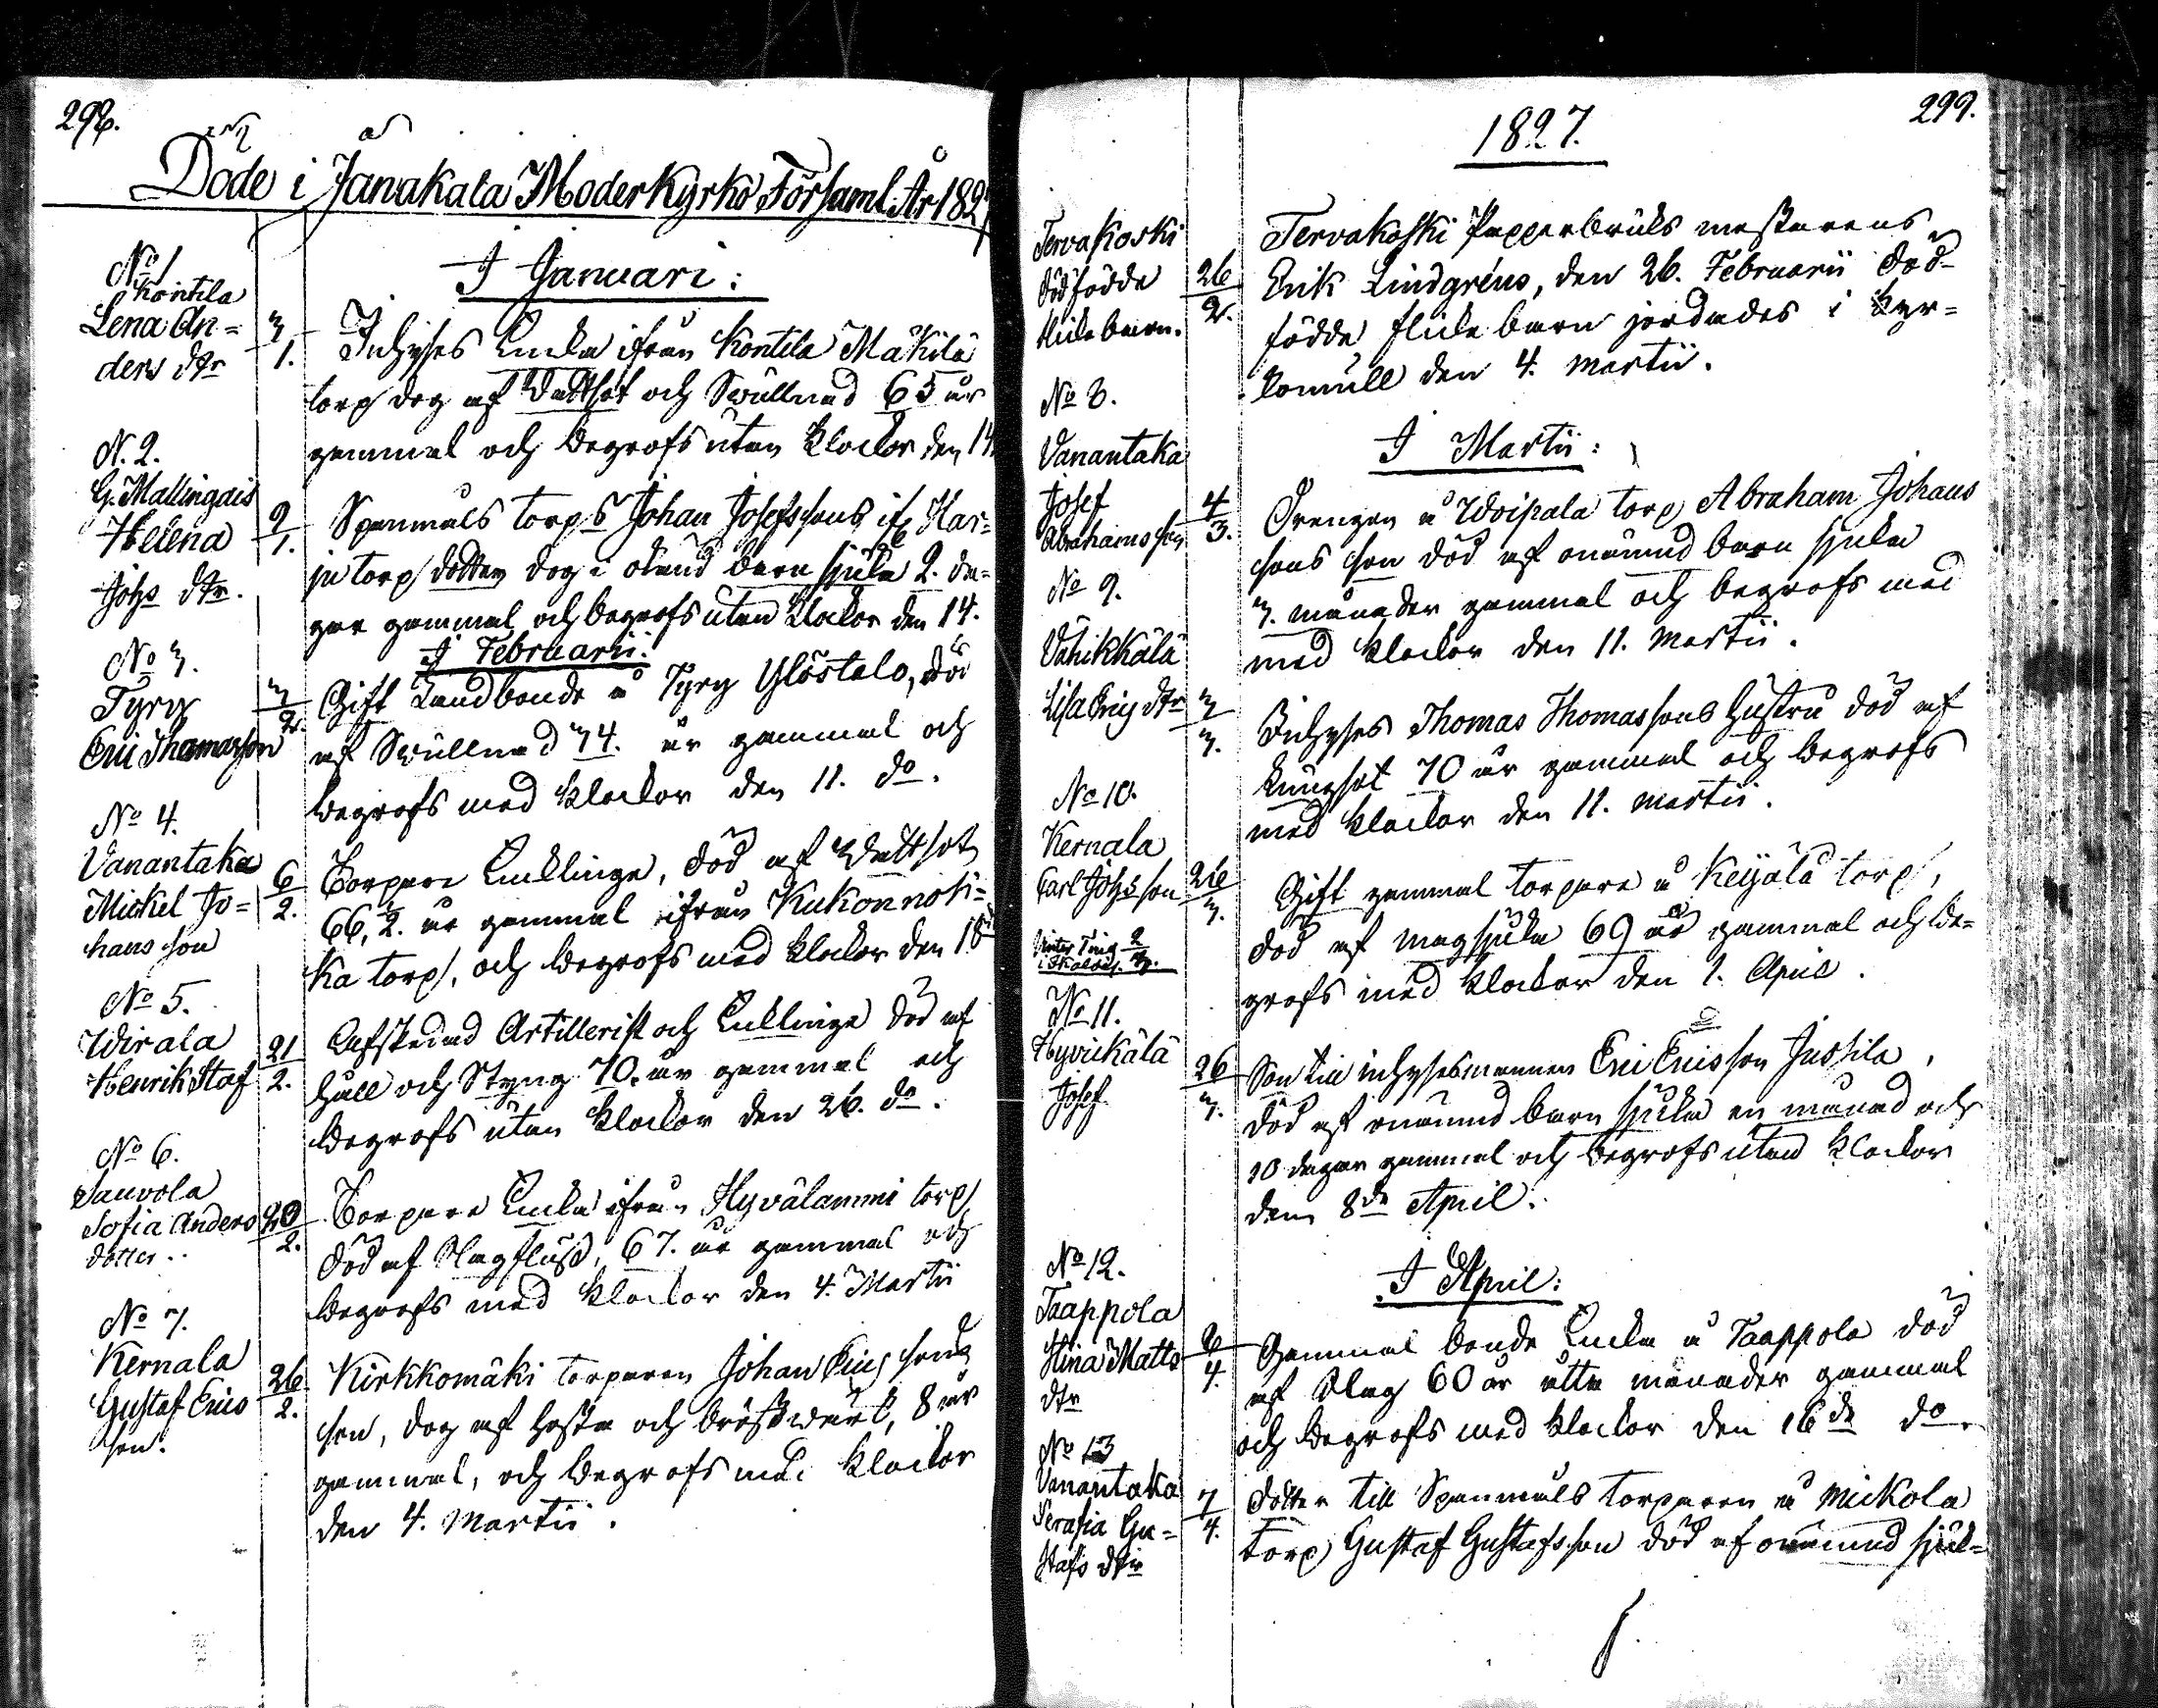 298.
Döde i Janakala Moderkyrko Församl. År 1827
No 1
Kontila
Lena An=
ders dtr
3/1.
I Januari:
Inhyses Enka ifrån Kontila Mäkilä
torp dog af Wattsot och Swullnad 63 år
gammal och begrofs utan klockor den 14
N. 2.
G. Mallingais
Helena
Johs dtr.
9/1.
Spanmåls torp S Johan Josefssons if. Har=
ju torp dotter dog i okänd barn sjuka 2. da=
gar gammal och begrofs utan klockor den 14.
I Februarii:
No 3.
Tyry
Eric Thomasson
3/2.
Gift Landbonde å Tyry Ylöstalo, död
af Swullnad 34. år gammal och
begrofs med klockor den 11. do.
No 4.
Vanantaka
Mickel Jo=
hans son
6/2.
Torpare Enklinge, död af Wattsot
66,½. år gammal ifrån Kukonnoki=
ka torp, och begrofs med klockor den 18
No 5.
Wirala
Henrik Staf
21/2.
Afskedad Artillerist och Enklinge död af
håll och Styng 70. år gammal och
begrofs utan klockor den 26. do.
No 6.
Sauvola
Sofia Anders
dotter..
20/2.
Torpare Enka ifrån Hyvälammi torp
död af Slagfluss, 67. år gammal och
begrofs med klockor den 4. Martii
No 7.
Kernala
Gustaf Erics
son.
26/2.
Kirkkomäki torparen Johan Erics sons
son, dog af hosta och bröstwärk, 8 år
gammal, och begrofs med klockor
den 4. Martii.
1827.
299.
Tervakoski
dödfödde
flicke barn.
26/2.
Tervakoski Pappersbruks mästarens
Erik Lindgréns, den 26. Februarii död-
födde flicke barn jordades i kyr=
komull den 4. Martii.
No 8.
I Martii:
Vanantaka
Josef
Abrahams son
4/3.
Drengen å Woipala torp Abraham Johans
sons son död af onämnd barn sjuka
3. månader gammal och begrofs med
med klockor den 11. Martii.
No 9.
Vähikkälä
Lisa Erics dtr
3/3.
Inhyses Thomas Thomassons hustru död af
lungsot 70 år gammal och begrofs
med klockor den 11. Martii.
No 10.
Kernala
Carl Johs son
26/3.
Gift gammal torpare å Keijälä torp,
död af magsjuka 69 år gammal och be=
grofs med klockor den 1. April.
Vinter Ting 2/3.
No 11.
Hyvickälä
Josef
26/3.
Son till inhysesmannen Eric Ericsson Jussila,
död af onämnd barn sjuka en månad och
10 dagar gammal och begrofs utan klockor
den 8de April.
I April:
No 12.
Taappola
Stina Matts
dtr
2/4.
Gammal bonde Enka å Taappola död
af Slag 60 år åtta månader gammal
och begrofs med klockor den 16de do.
No 13
Vanantaka
Serafia Gu=
stafs dtr
7/4.
Dotter till Spanmåls torparen å Mickola
torp Gustaf Gustafsson död af onämnd sjuk=